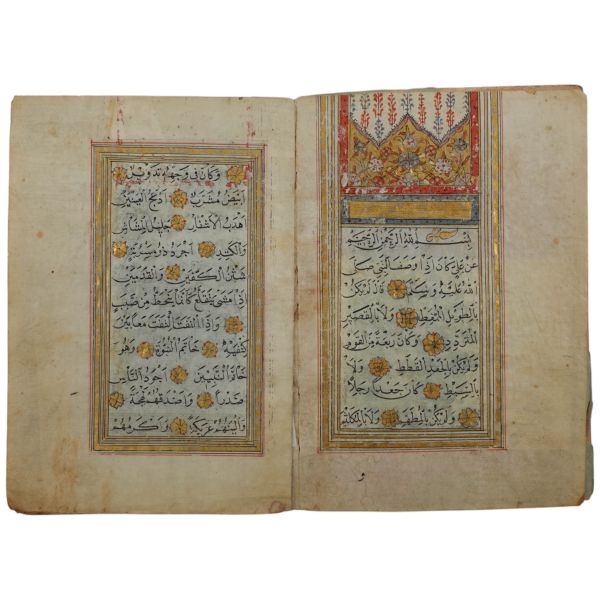 بسم الله الرحمن الرحيم
عن علي كان اذا وصف النبي صلى
الله عليه وسلم قال لم يكن
بالطويل الممغط ولا بالقصير
المتردد وكان ربعة من القوم
ولم يكن بالجعد القطط ولا
بالسبط كان جعدا رجلا
ولم يكن بالمطهم ولا بالمكلثم
و
وكان في وجهه تدوير
ابيض مشرب ادعج العينين
هدب الاشفار جليل المشاش
والكتد اجرد ذو مسربة
شثن الكفين والقدمين
اذا مشى يتقلع كأنما ينحط من صبب
واذا التفت التفت معا بين
كتفيه خاتم النبوة وهو
خاتم النبيين اجود الناس
صدرا واصدقهم لهجة
والينهم عريكة واكرمهم